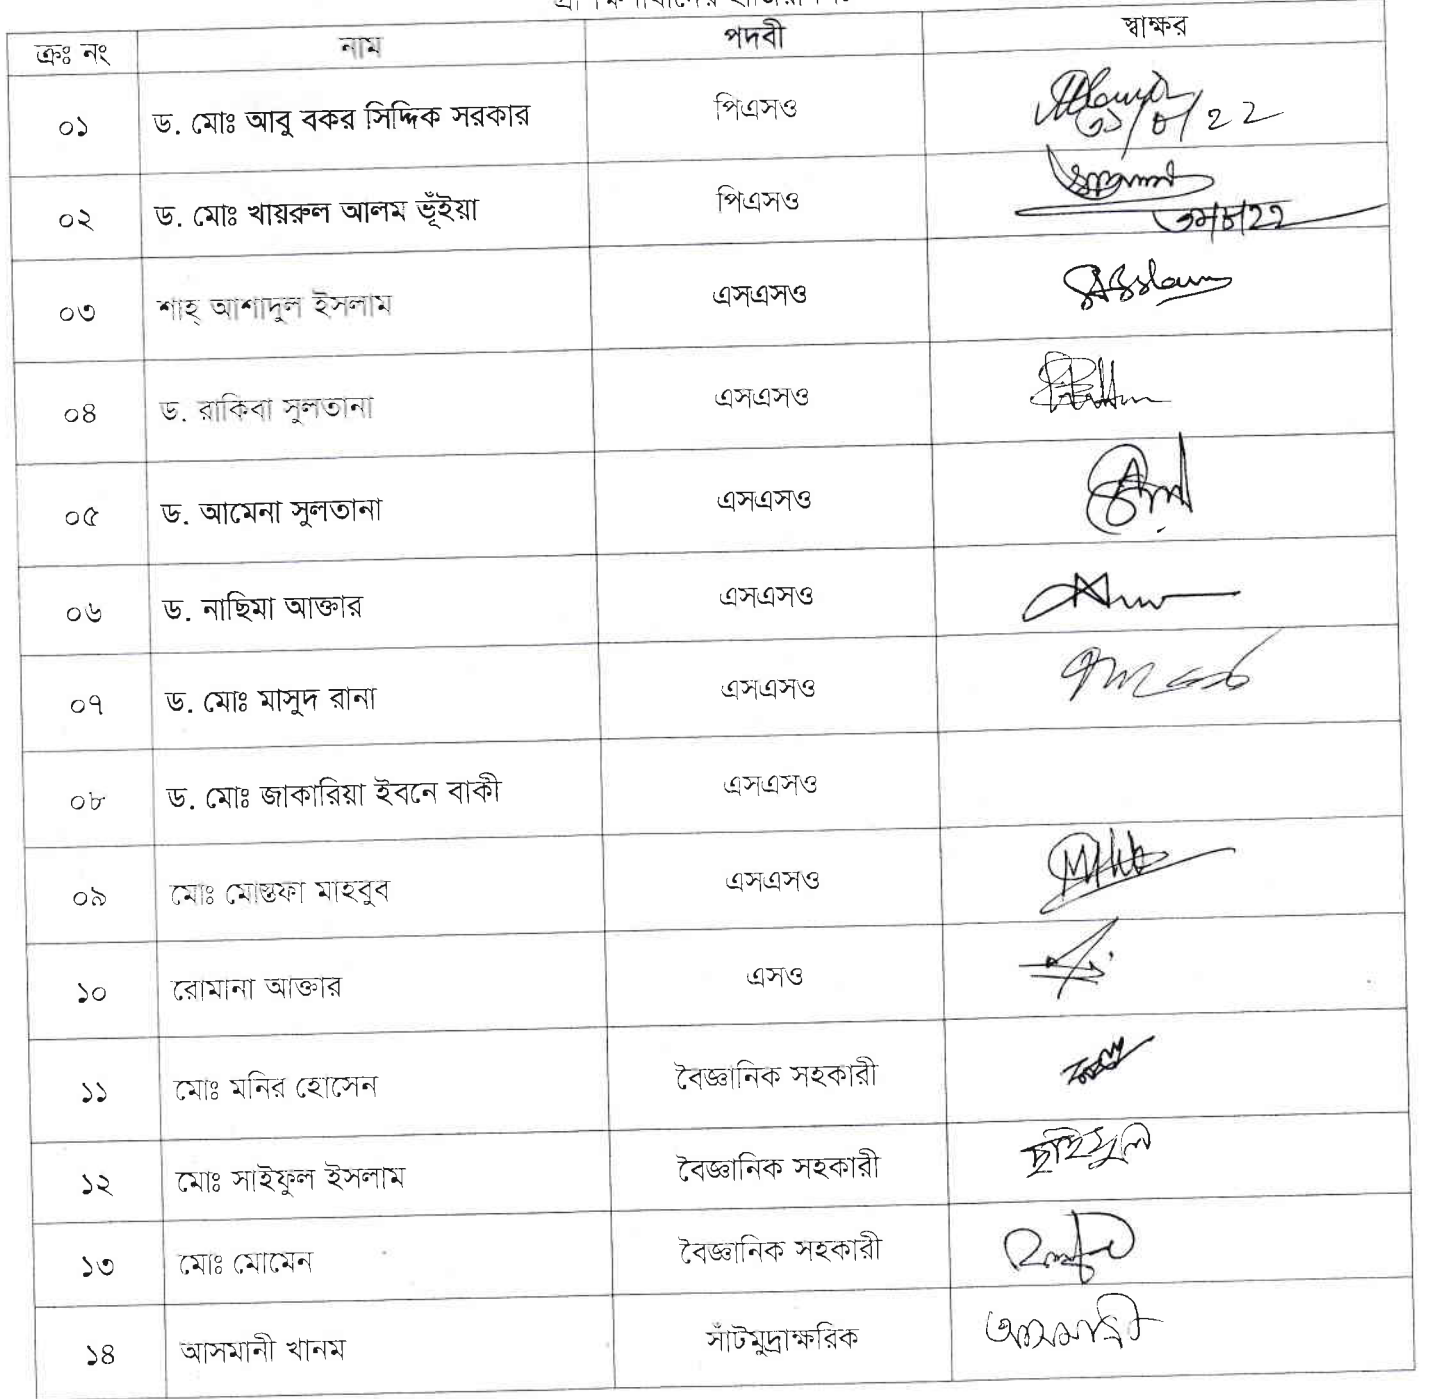 ক্রঃ নং নাম পদবী স্বাক্ষর
০১ ড. মোঃ আবু বকর সিদ্দিক সরকার পিএসও ৩১/৮/22
০২ ড. মোঃ খায়রুল আলম ভূঁইয়া পিএসও ৩১/৮/২২
০৩ শাহ্ আশাদুল ইসলাম এসএসও
০৪ ড. রাকিবা সুলতানা এসএসও
০৫ ড. আমেনা সুলতানা এসএসও
০৬ ড. নাছিমা আক্তার এসএসও
০৭ ড. মোঃ মাসুদ রানা এসএসও
০৮ ড. মোঃ জাকারিয়া ইবনে বাকী এসএসও
০৯ মোঃ মোস্তফা মাহবুব এসএসও
১০ রোমানা আক্তার এসও
১১ মোঃ মনির হোসেন বৈজ্ঞানিক সহকারী
১২ মোঃ সাইফুল ইসলাম বৈজ্ঞানিক সহকারী ছাইফুল
১৩ মোঃ মোমেন বৈজ্ঞানিক সহকারী
১৪ আসমানী খানম সাঁটমুদ্রাক্ষরিক আসমানী